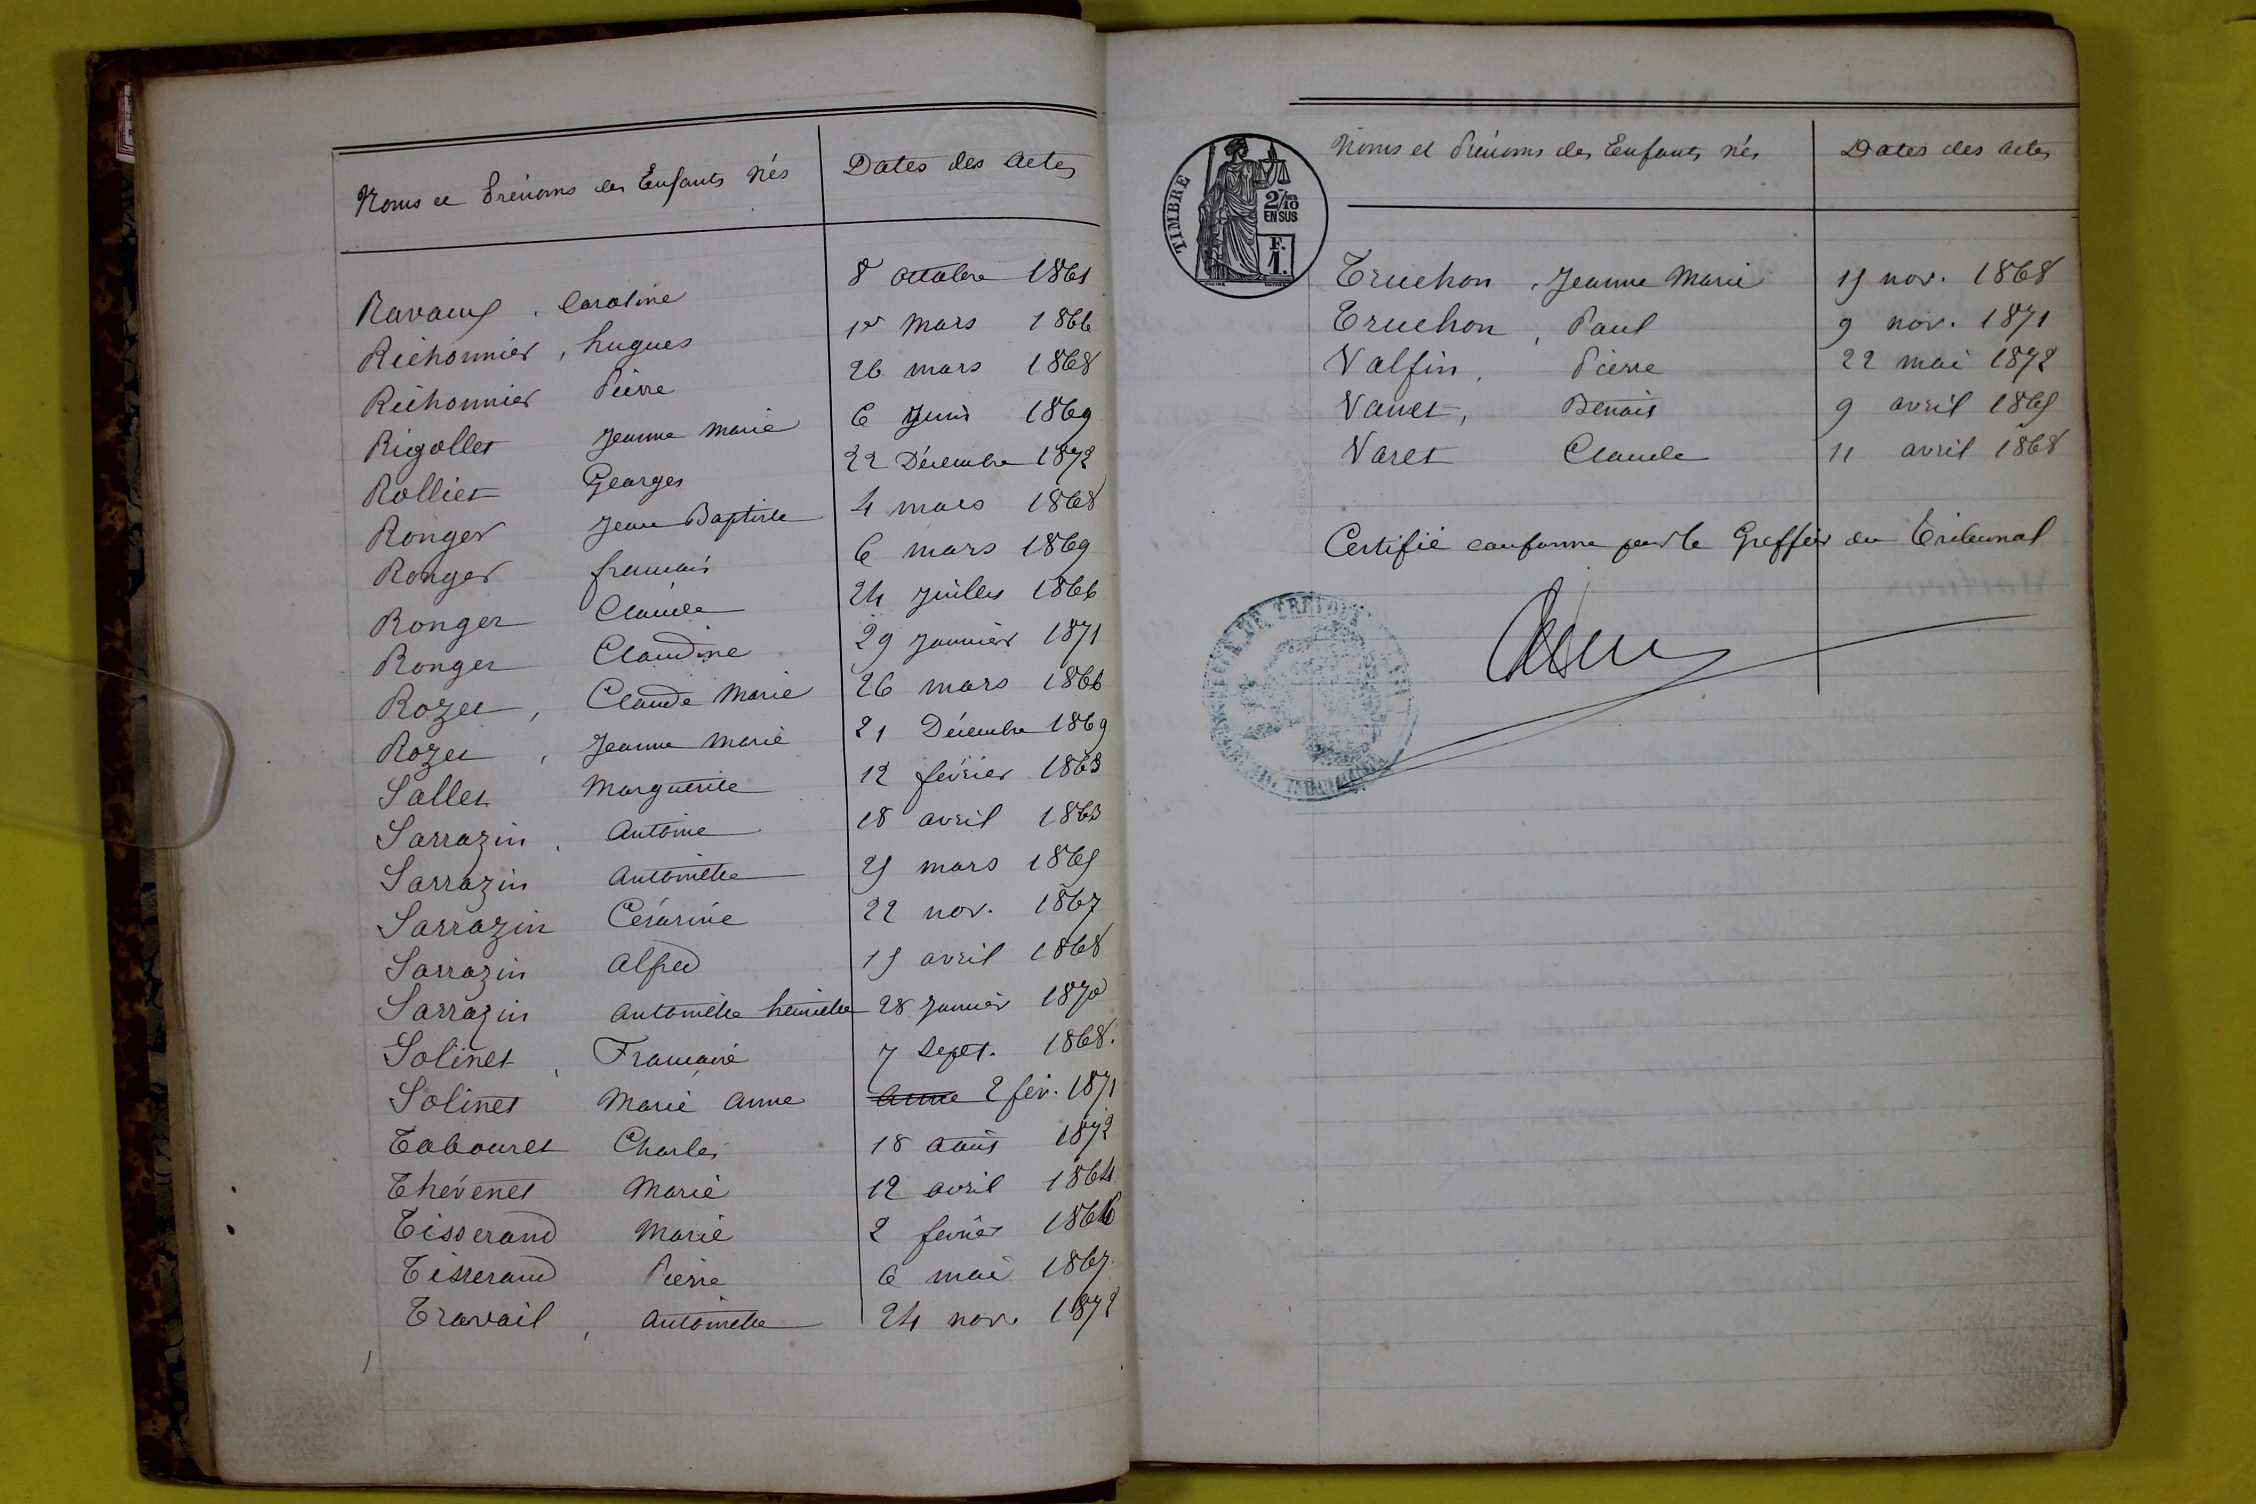 Noms et Prénoms des Enfants nés Dates des Actes
Ravaux, Caroline 8 octobre 1865
Richonnier, hugues 1er mars 1866
Richonnier Pierre 26 mars 1868
Rigollet Jeanne Marie 6 Juin 1869
Rolliet Georges 22 Décembre 1872
Ronger Jean Baptiste 4 mars 1868
Ronger francois 6 mars 1869
Ronger Claude 24 Juillet 1866
Ronger Claudine 29 Janvier 1871
Rozet, Claude Marie 26 mars 1866
Rozet, Jeanne Marie 21 Décembre 1869
Sallet Marguerite 12 février 1863
Sarrazin, Antoine 18 avril 1863
Sarrazin Antoinette 25 mars 1865
Sarrazin Césarine 22 nov. 1867
Sarrazin Alfred 15 avril 1868
Sarrazin Antoinette henriette 28 Janvier 1870
Solinet, Francoise 7 Sept. 1868.
Solinet Marie Anne Anne 2 fév. 1871
Tabouret Charles 18 Août 1872
Thévenet Marie 12 avril 1864
Tisserand Marie 2 fevrier 1866
Tisserand Pierre 6 mai 1867
Travail, Antoinette 24 nov. 1872
TIMBRE
2/10
EN SUS
F.
1.
Noms et Prénoms des Enfants nés Dates des Actes
Truchon, Jeanne Marie 15 nov. 1868
Truchon, Paul 9 nov. 1871
Valfin, Pierre 22 mai 1872
Vanet, Benoit 9 avril 1865
Varet Claude 11 avril 1868
Certifié conforme par le Greffier du Tribunal